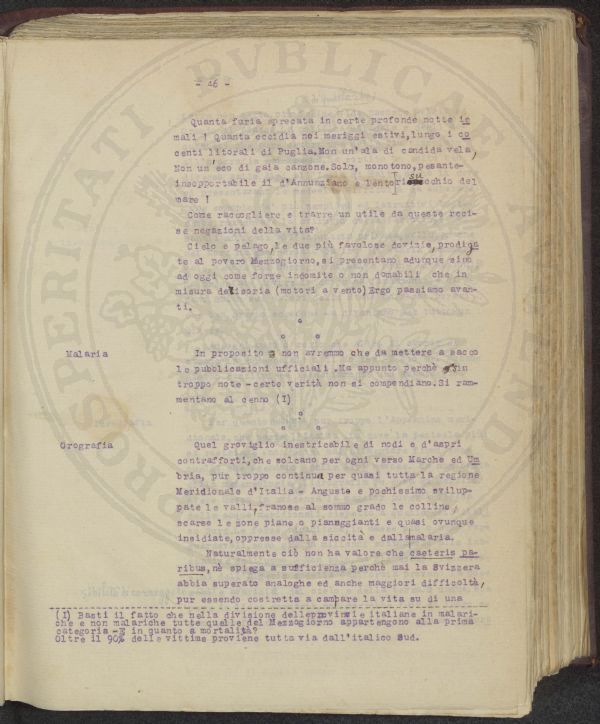 - 46 -
Quanta furia sprecata in certe profonde notte ie
mali ! Quanta eccidia nei meriggi estivi,lungo i co
centi litorali di Puglia.Non un'ala di candida vela,
Non un'eco di gaia canzone.Solo, monotono,pesante-
insopportabile il d'Annunziano e lento risucchio del
mare !
Come raccogliere e trarre un utile da queste reci-
se negazioni della vita?
Cielo e pelago,le due più favolose dovizie,prodiga
te al povero Mezzogiorno,si presentano adunque sino
ad oggi come forze indomite o non domabili che in
misura derisoria (motori a vento)Ergo passiamo avan-
ti.
Malaria
In proposito non avremmo che da mettere a sacco
le pubblicazioni ufficiali .Ma appunto perchè sin
troppo note -certe verità non si compendiano.Si ram-
mentano al cenno (I)
Orografia
Quel groviglio inestricabile di nodi e d'aspri
contrafforti,che solcano per ogni verso Marche ed Um
bria, pur troppo continua per quasi tutta la regione
Meridionale d'Italia - Anguste e pochissimo svilup-
pate le valli,franose al sommo grado le colline,
scarse le zone piane o pianeggianti e quasi ovunque
insidiate,oppresse dalla siccità e dalla malaria.
Naturalmente ciò non ha valore che caeteris pa-
ribus,nè spiega a sufficienza perchè mai la Svizzera
abbia superato analoghe ed anche maggiori difficoltà,
pur essendo costretta a campare la vita su di una
(I) Basti il fatto che nella divisione delle provincie italiane in malari-
che e non malariche tutte quelle del Mezzogiorno appartengono alla prima
categoria -E in quanto a mortalità?
Oltre il 90% delle vittime proviene tutta via dall'italico Sud.